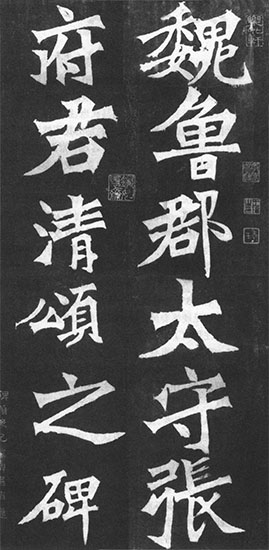 魏魯郡太守張
府君清頌之碑